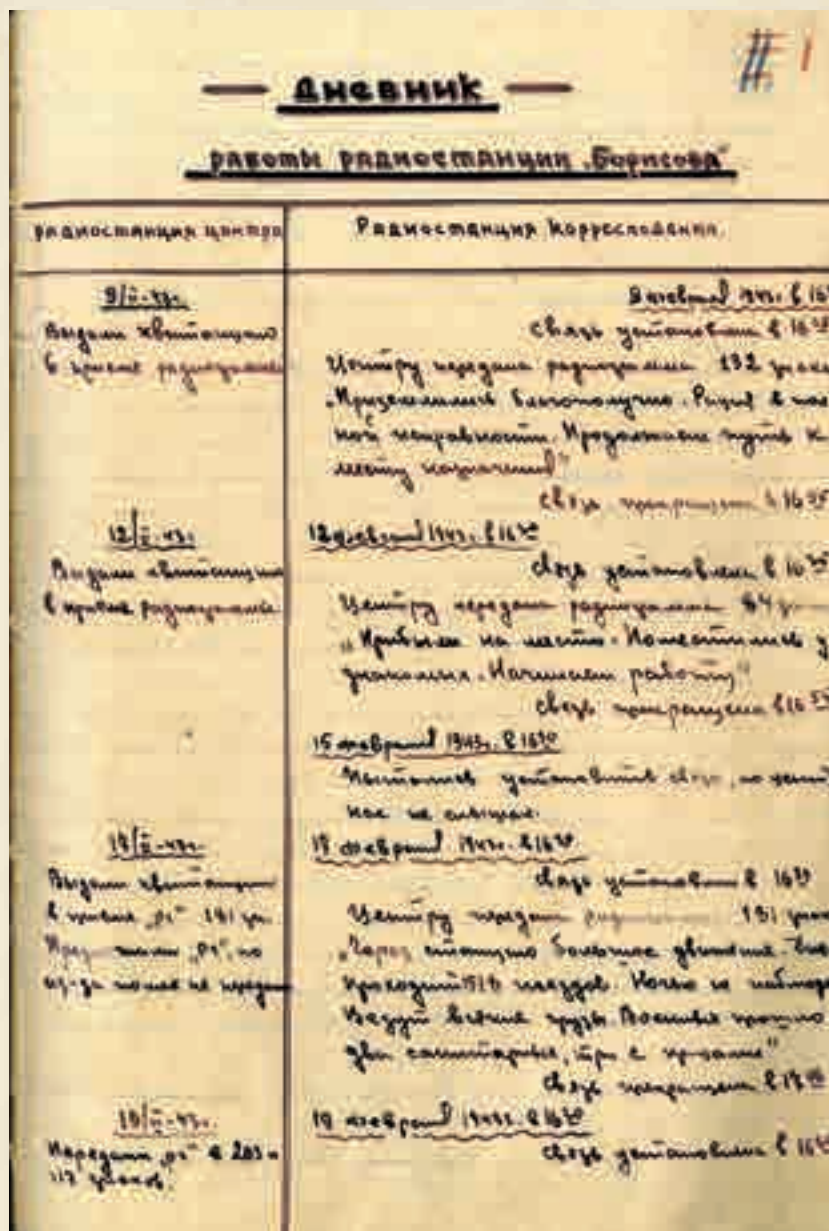 # 1
— Дневник —
работы радиостанции „Борисова"
Радиостанция центра
Радиостанция Корреспондента
9/II-43г.
Выдали квитанцию
в приеме радиограммы
9 февраля 1943г. в 16
связь установлена в 16
Центру передана радиограмма 132 знака
„Приземлились благополучно. Рация в пол-
ной исправности. Продолжаем путь к
месту назначения"
связь прекращена в 16
12/II-43г.
Выдали квитанцию
в приеме радиограммы
12 февраля 1943г. в 16
связь установлена в 16
Центру передана радиограмма 84
„Прибыли на место. Поместились у
знакомых. Начинаем работу"
связь прекращена в 16
15 февраля 1943г. в 16
Пытались установить связь, но
нас не слышал.
Выдали квитанцию
в приеме „рг" 131 зн.
„рг", но
из-за помех не
февраля 1943г. в 16
связь установлена в 16
Центру передана 131
„Через станцию большое движение.
проходит поездов. Ночью не
Везут всякие грузы. Военных прошло
два санитарных, три с"
связь прекращена в 17
19/II-43г.
Передали „рг" в 203 и
117 знаков.
19 февраля 1943г. в 16
связь установлена в 16